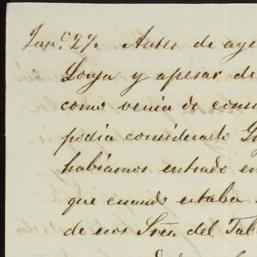 Jun.º 27. Antes de aye
Lonja y apesar de
como venia de cons
podia considerarlo G
habíamos entrado en
que cuando estaba
de esos Sres. del Tab